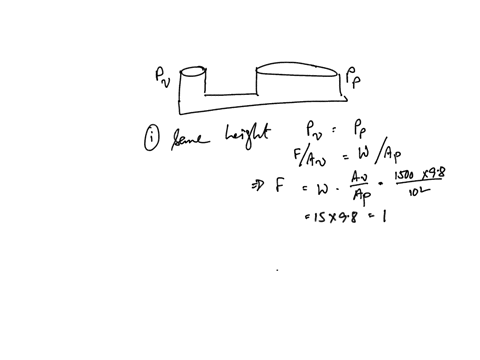 Pv Pp
(i) Same height Pv = Pp
F/Av = W/Ap
⇒ F = W · Av/Ap = 1500 × 9.8/10²
= 15 × 9.8 = 1